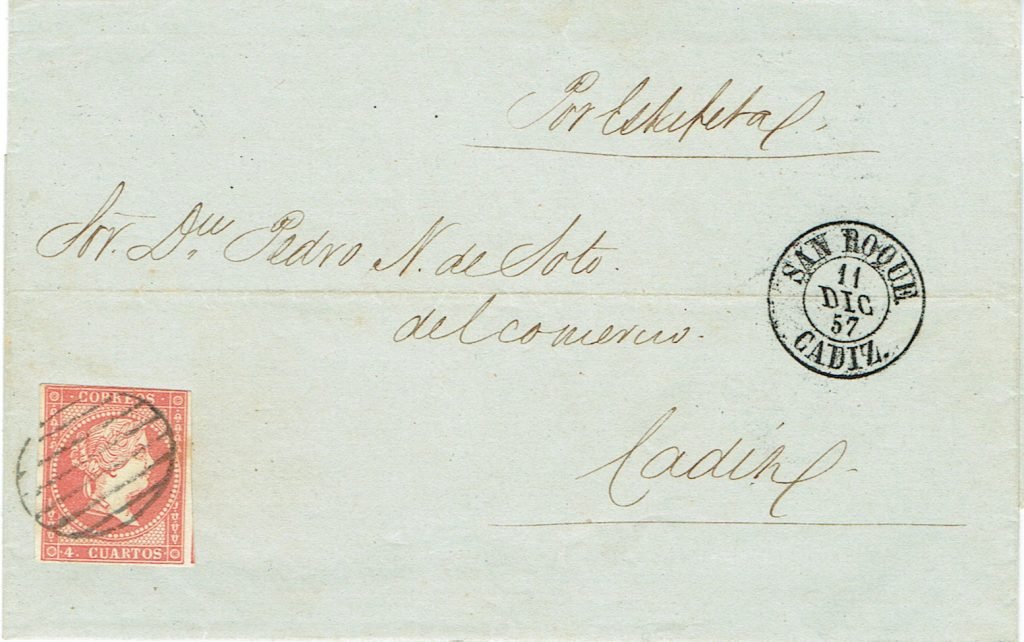 Por Estafeta
Sõr. Dn Pedro N. de Soto.
del comercio.
SAN ROQUE
11
DIC
57
CADIZ.
CORREOS
4. CUARTOS
Cadiz